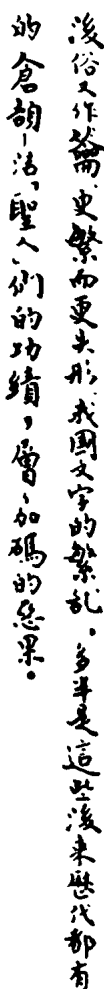 後俗又作籥，更繁而更失形，我國文字的繁乱。多半是這些後来歷代都有
的倉頡一活「聖人」們的功績，層层加碼的惡果。